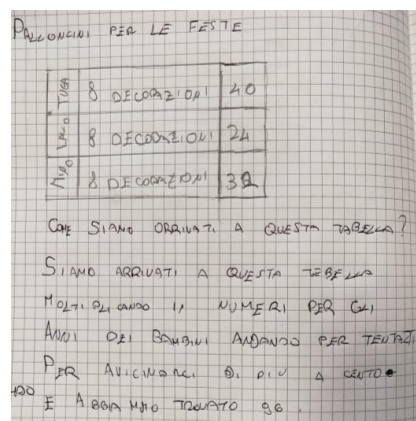 PALLONCINI PER LE FESTE
TUGA 8 DECORAZIONI 40
8 DECORAZIONI 24
8 DECORAZIONI 32
COME SIAMO ARRIVATI A QUESTA TABELLA?
SIAMO ARRIVATI A QUESTA TEBELLA
MOLTIPLICANDO I NUMERI PER GLI
ANNI DEI BAMBINI ANDANDO PER TENTATI
PER AVICINARCI DI PIÙ A CENTO
E ABBIAMMO TROVATO 96.